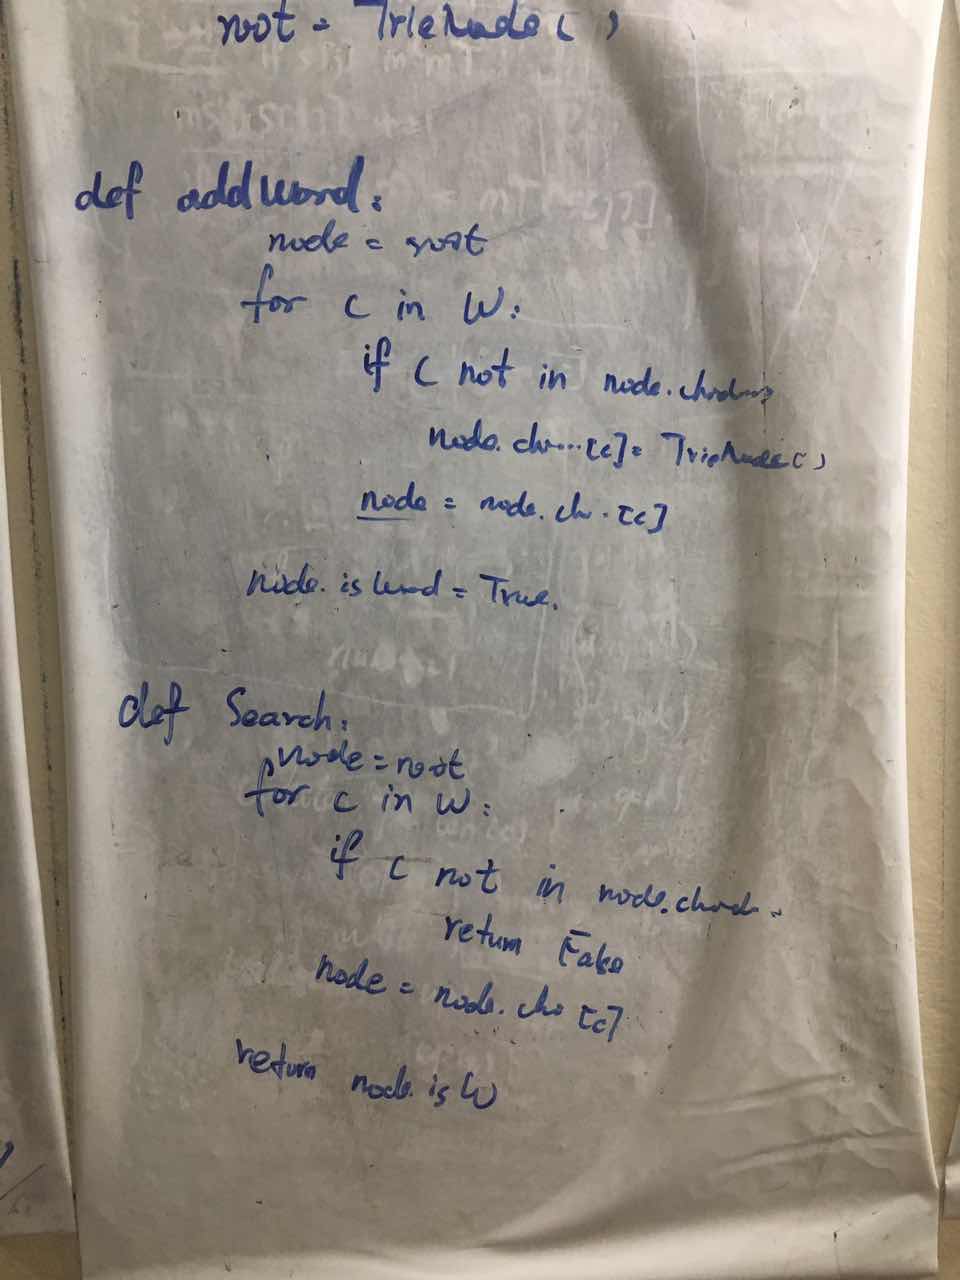 root = TrieNode ( )
def addWord:
node = root
for c in W:
if c not in node.
node. [c] = TrieNode ( )
node = node. ch . [c]
node. is Word = True.
def Search:
node = root
for c in W:
if c not in node.
return False
node = node. ch [c]
return node. is W